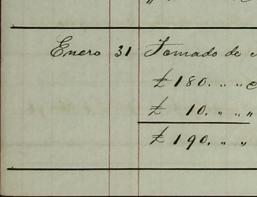 Enero 31 Tomado de
£ 180. " "
£ 10. " " "
£ 190. " "